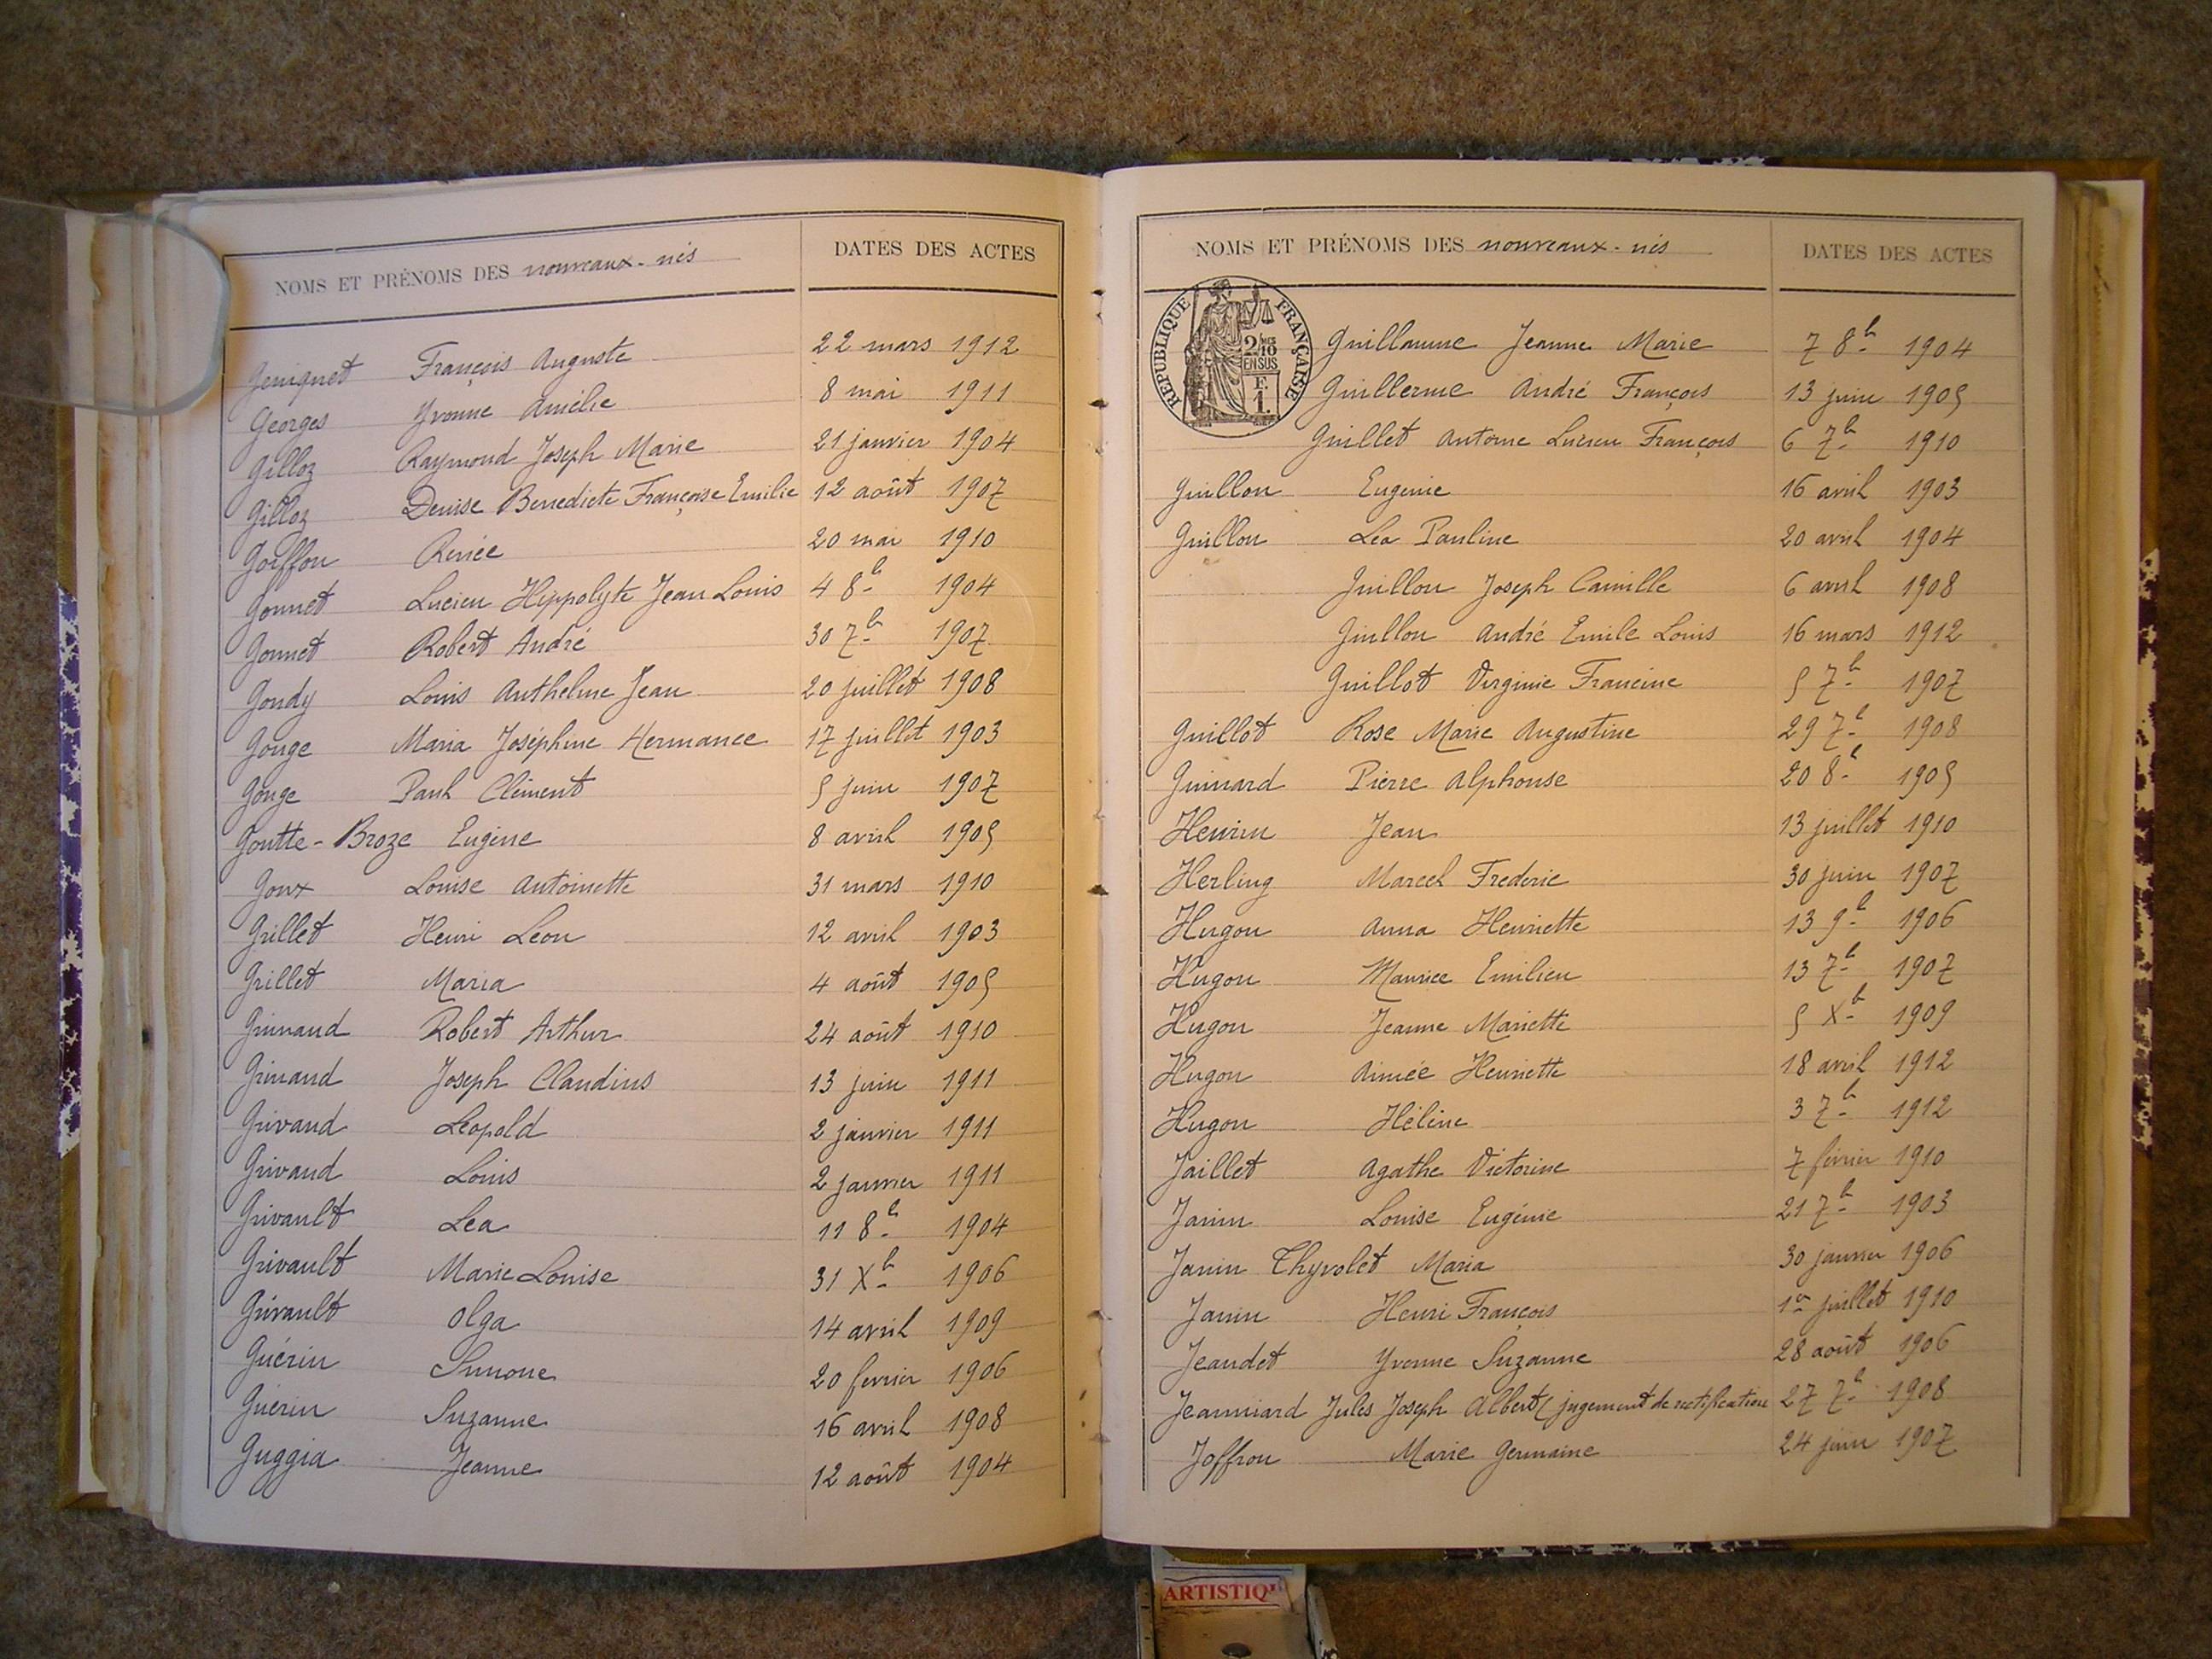 NOMS ET PRÉNOMS DES nouveaux-nés DATES DES ACTES
Genignet François Auguste 22 mars 1912
Georges Yvonne Amélie 8 mai 1911
Gilloz Raymond Joseph Marie 21 janvier 1904
Gilloz Denise Benedicte Françoise Emilie 12 août 1907
Goiffon Renée 20 mai 1910
Gonnet Lucien Hippolyte Jean Louis 4 8b 1904
Gonnet Robert André 30 7b 1907
Gondy Louis Anthelme Jean 20 juillet 1908
Gouge Maria Joséphine Hermance 17 juillet 1903
Gouge Paul Clément 5 juin 1907
Goutte-Broze Eugène 8 avril 1905
Goux Louise Antoinette 31 mars 1910
Grillet Henri Leon 12 avril 1903
Grillet Maria 4 août 1905
Grinand Robert Arthur 24 août 1910
Grinand Joseph Claudius 13 juin 1911
Grivaud Léopold 2 janvier 1911
Grivaud Louis 2 janvier 1911
Grivault Lea 11 8b 1904
Grivault Marie Louise 31 Xb 1906
Grivault Olga 14 avril 1909
Guérin Simone 20 fevrier 1906
Guérin Suzanne 16 avril 1908
Guggia Jeanne 12 août 1904
NOMS ET PRÉNOMS DES nouveaux-nés DATES DES ACTES
RÉPUBLIQUE FRANÇAISE
2/10 EN SUS
F. 1.
Guillaume Jeanne Marie 7 8b 1904
Guillerme André François 13 juin 1905
Guillet Antoine Lucien François 6 7b 1910
Guillon Eugenie 16 avril 1903
Guillon Léa Pauline 20 avril 1904
Guillon Joseph Camille 6 avril 1908
Guillon André Emile Louis 16 mars 1912
Guillot Virginie Francine 5 7b 1907
Guillot Rose Marie Augustine 29 7b 1908
Guinard Pierre Alphonse 20 8b 1905
Henrin Jean 13 juillet 1910
Herling Marcel Frederic 30 juin 1907
Hugon Anna Henriette 13 9b 1906
Hugon Maurice Emilien 13 7b 1907
Hugon Jeanne Mariette 5 Xb 1909
Hugon Aimée Henriette 18 avril 1912
Hugon Hélène 3 7b 1912
Jaillet Agathe Victorine 7 février 1910
Janin Louise Eugénie 21 7b 1903
Janin Thyvolet Maria 30 janvier 1906
Janin Henri François 1er juillet 1910
Jeandet Yvonne Suzanne 28 août 1906
Jeanniard Jules Joseph Albert (jugement de rectification 27 7b 1908
Joffron Marie Germaine 24 juin 1907
ARTISTIQU